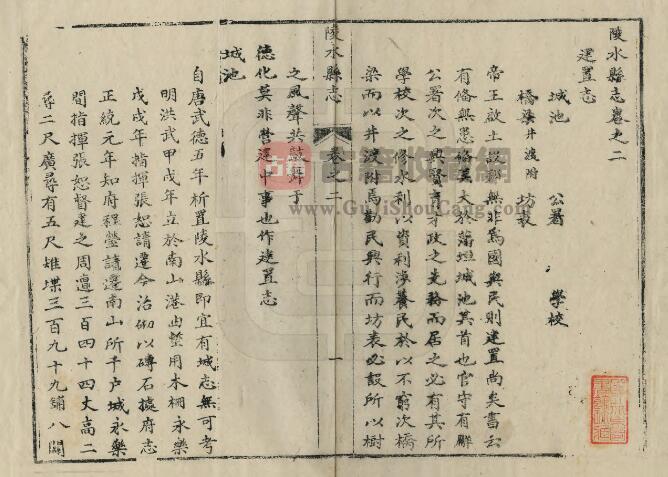 陵水縣志卷之二
建置志
城池 公署 學校
橋梁井渡附 坊表
帝王啟土設郡無非爲國與民則建置尚矣書云
有備無患備莫大於藩垣城池其首也官守有廨
公署次之興賢育才政之先務而居之必有其所
學校次之修水利以資利濟養民於以不窮次橋
梁而以井渡附焉勸民興行而坊表必設所以樹
陵水縣志 卷之二 一
之風聲共鼓舞于
德化莫非營建中事也作建置志
城池
自唐武德五年析置陵水縣即宜有城志無可考
明洪武甲戌年立於南山港甶整用木柵永樂
戊戌年指揮張恕請遷今治砌以磚石據府志
正統元年知府程瑩請遷南山所千戶城永樂
間指揮張恕督建之周遭三百四十四丈高二
尋二尺廣尋有五尺雉堞三百九十九鋪八闢
古籍收藏網
www.GuJiShouCang.com